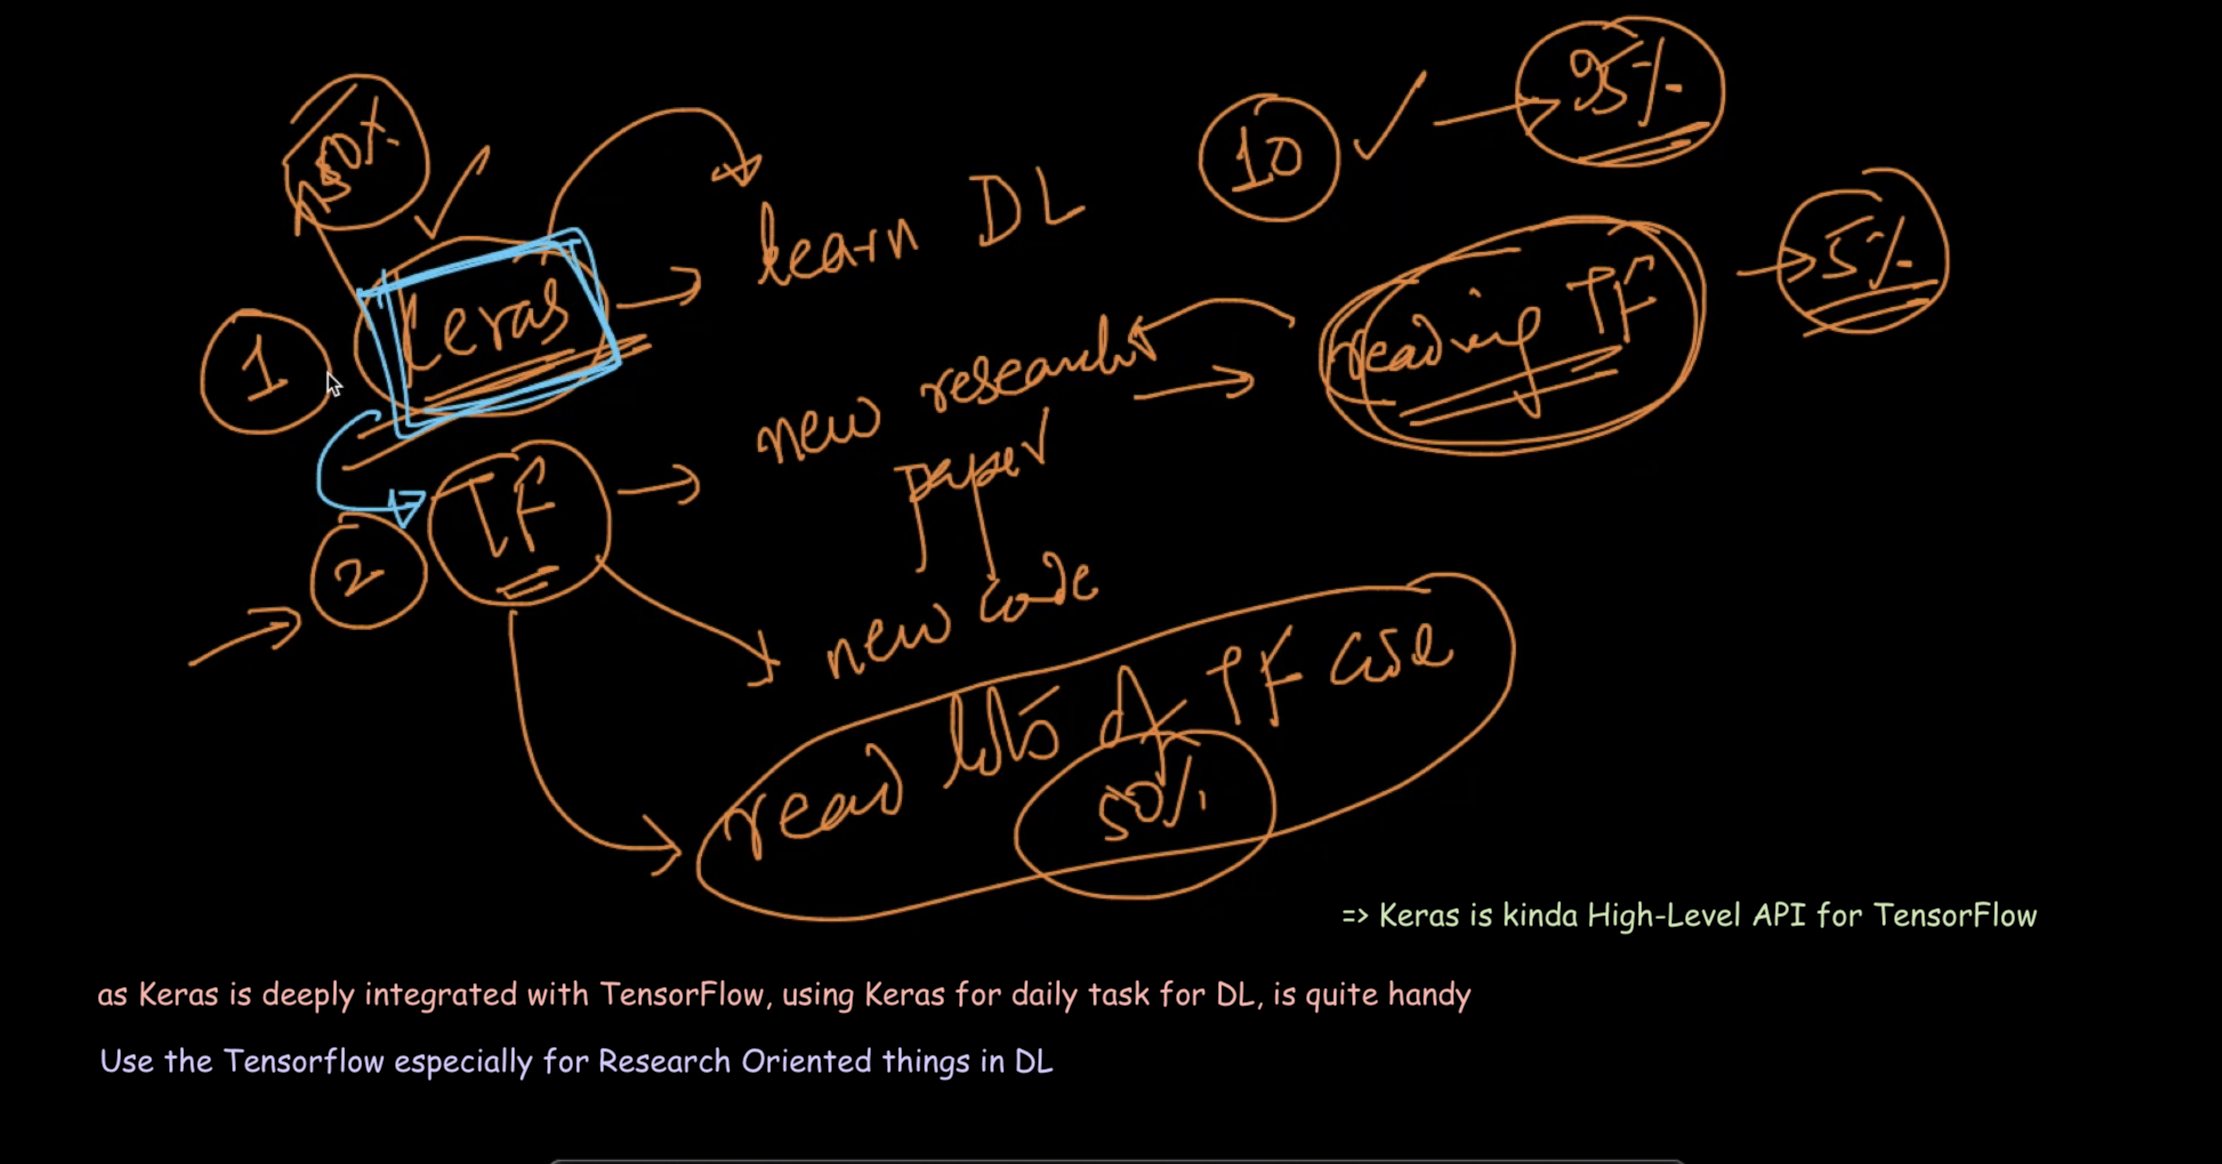 95%
10
learn DL
5%
Keras
1
reading TF
new research
paper
TF
2
new code
read lots of TF code
50%
=> Keras is kinda High-Level API for TensorFlow
as Keras is deeply integrated with TensorFlow, using Keras for daily task for DL, is quite handy
Use the Tensorflow especially for Research Oriented things in DL